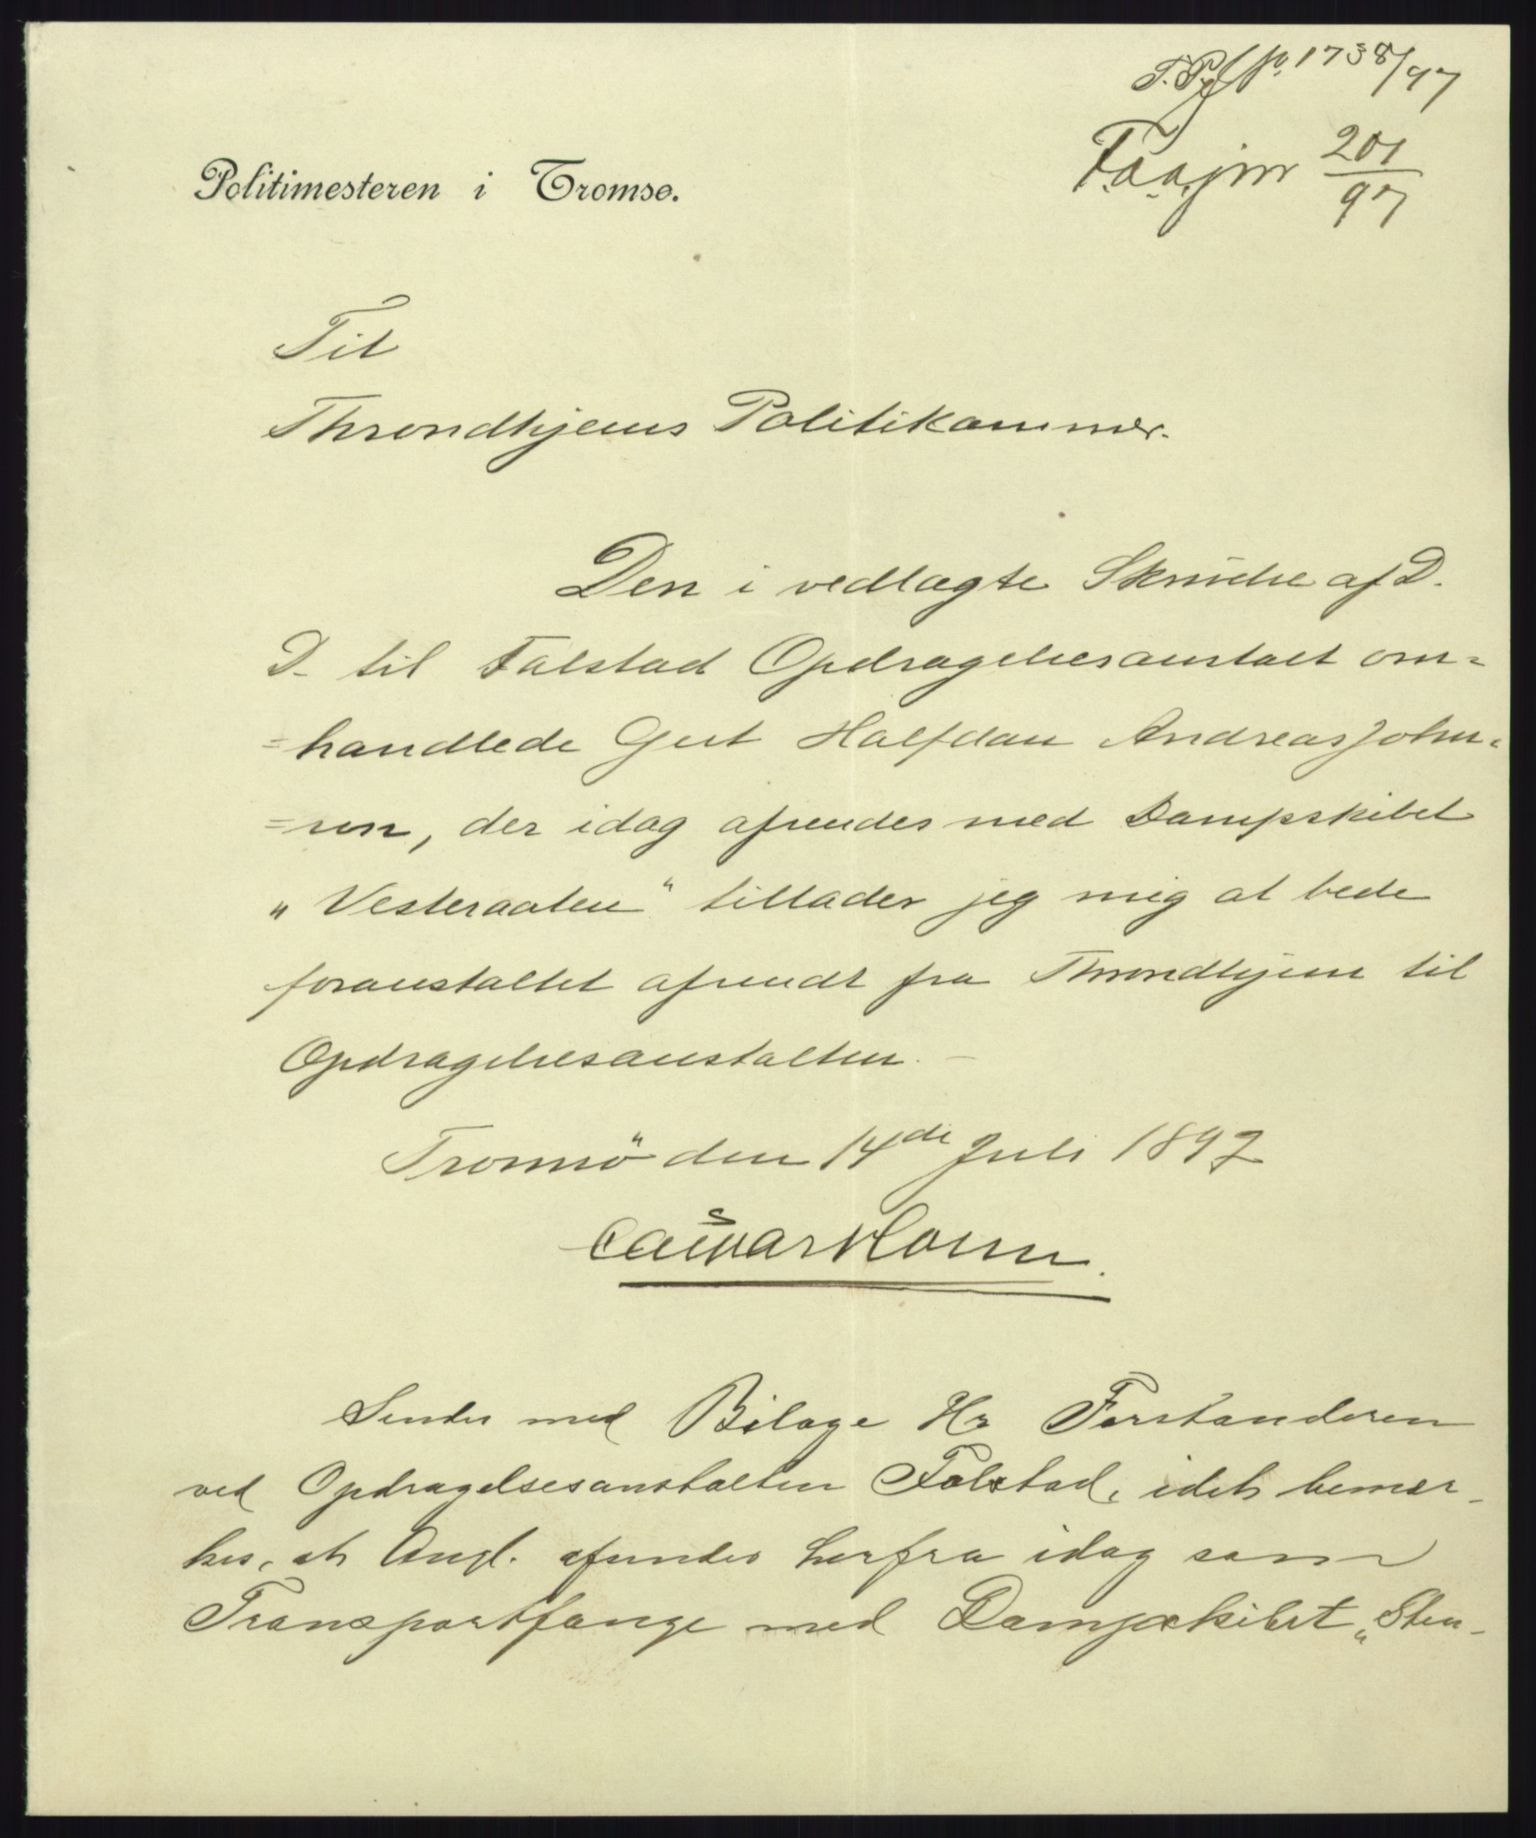 1738/97
201
97
Politimesteren i Tromsø.
Til
Throndhjems Politikammer.
Den i vedlagte Skrivelse af D.
D. til Falstad Opdragelsesanstalt om=
=handlede Gut Halfdan Andreas John=
=sen, der idag afsendes med Dampskibet
„Vesteraalen" tillader jeg mig at bede
foranstaltet afsendt fra Throndhjem til
Opdragelsesanstalten. —
Tromsö den 14de Juli 1897
Sendes med Bilage Hr Forstanderen
ved Opdragelsesanstalten Falstad, idet bemær-
kes, at Angl. afsendes herfra idag som
Transportfange med Dampskibet „Sten-